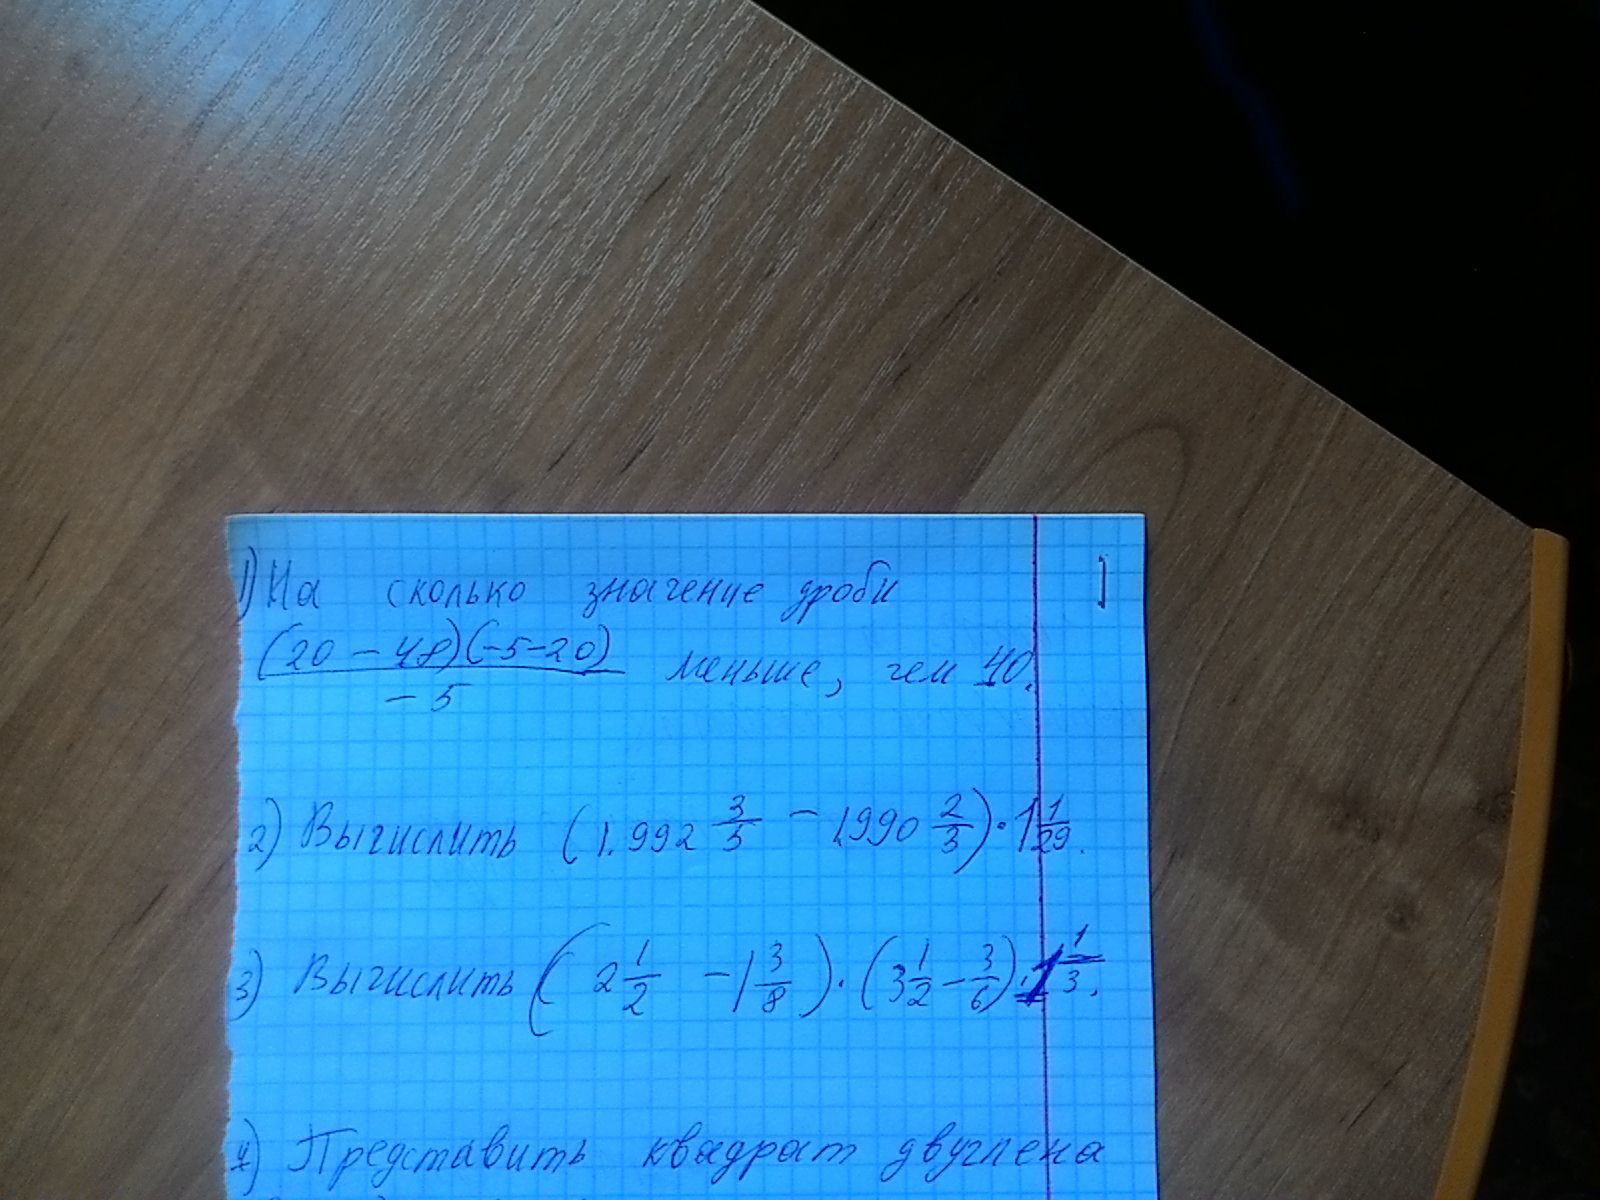 1) На сколько значение дроби 1
(20 - 48)(-5-20)
/ -5 меньше, чем 40.
2) Вычислить (1.992 3/5 - 1990 2/3) · 1 1/29.
3) Вычислить (2 1/2 - 1 3/8) · (3 1/2 - 3/6) : 1 1/3.
4) Представить квадрат двучлена